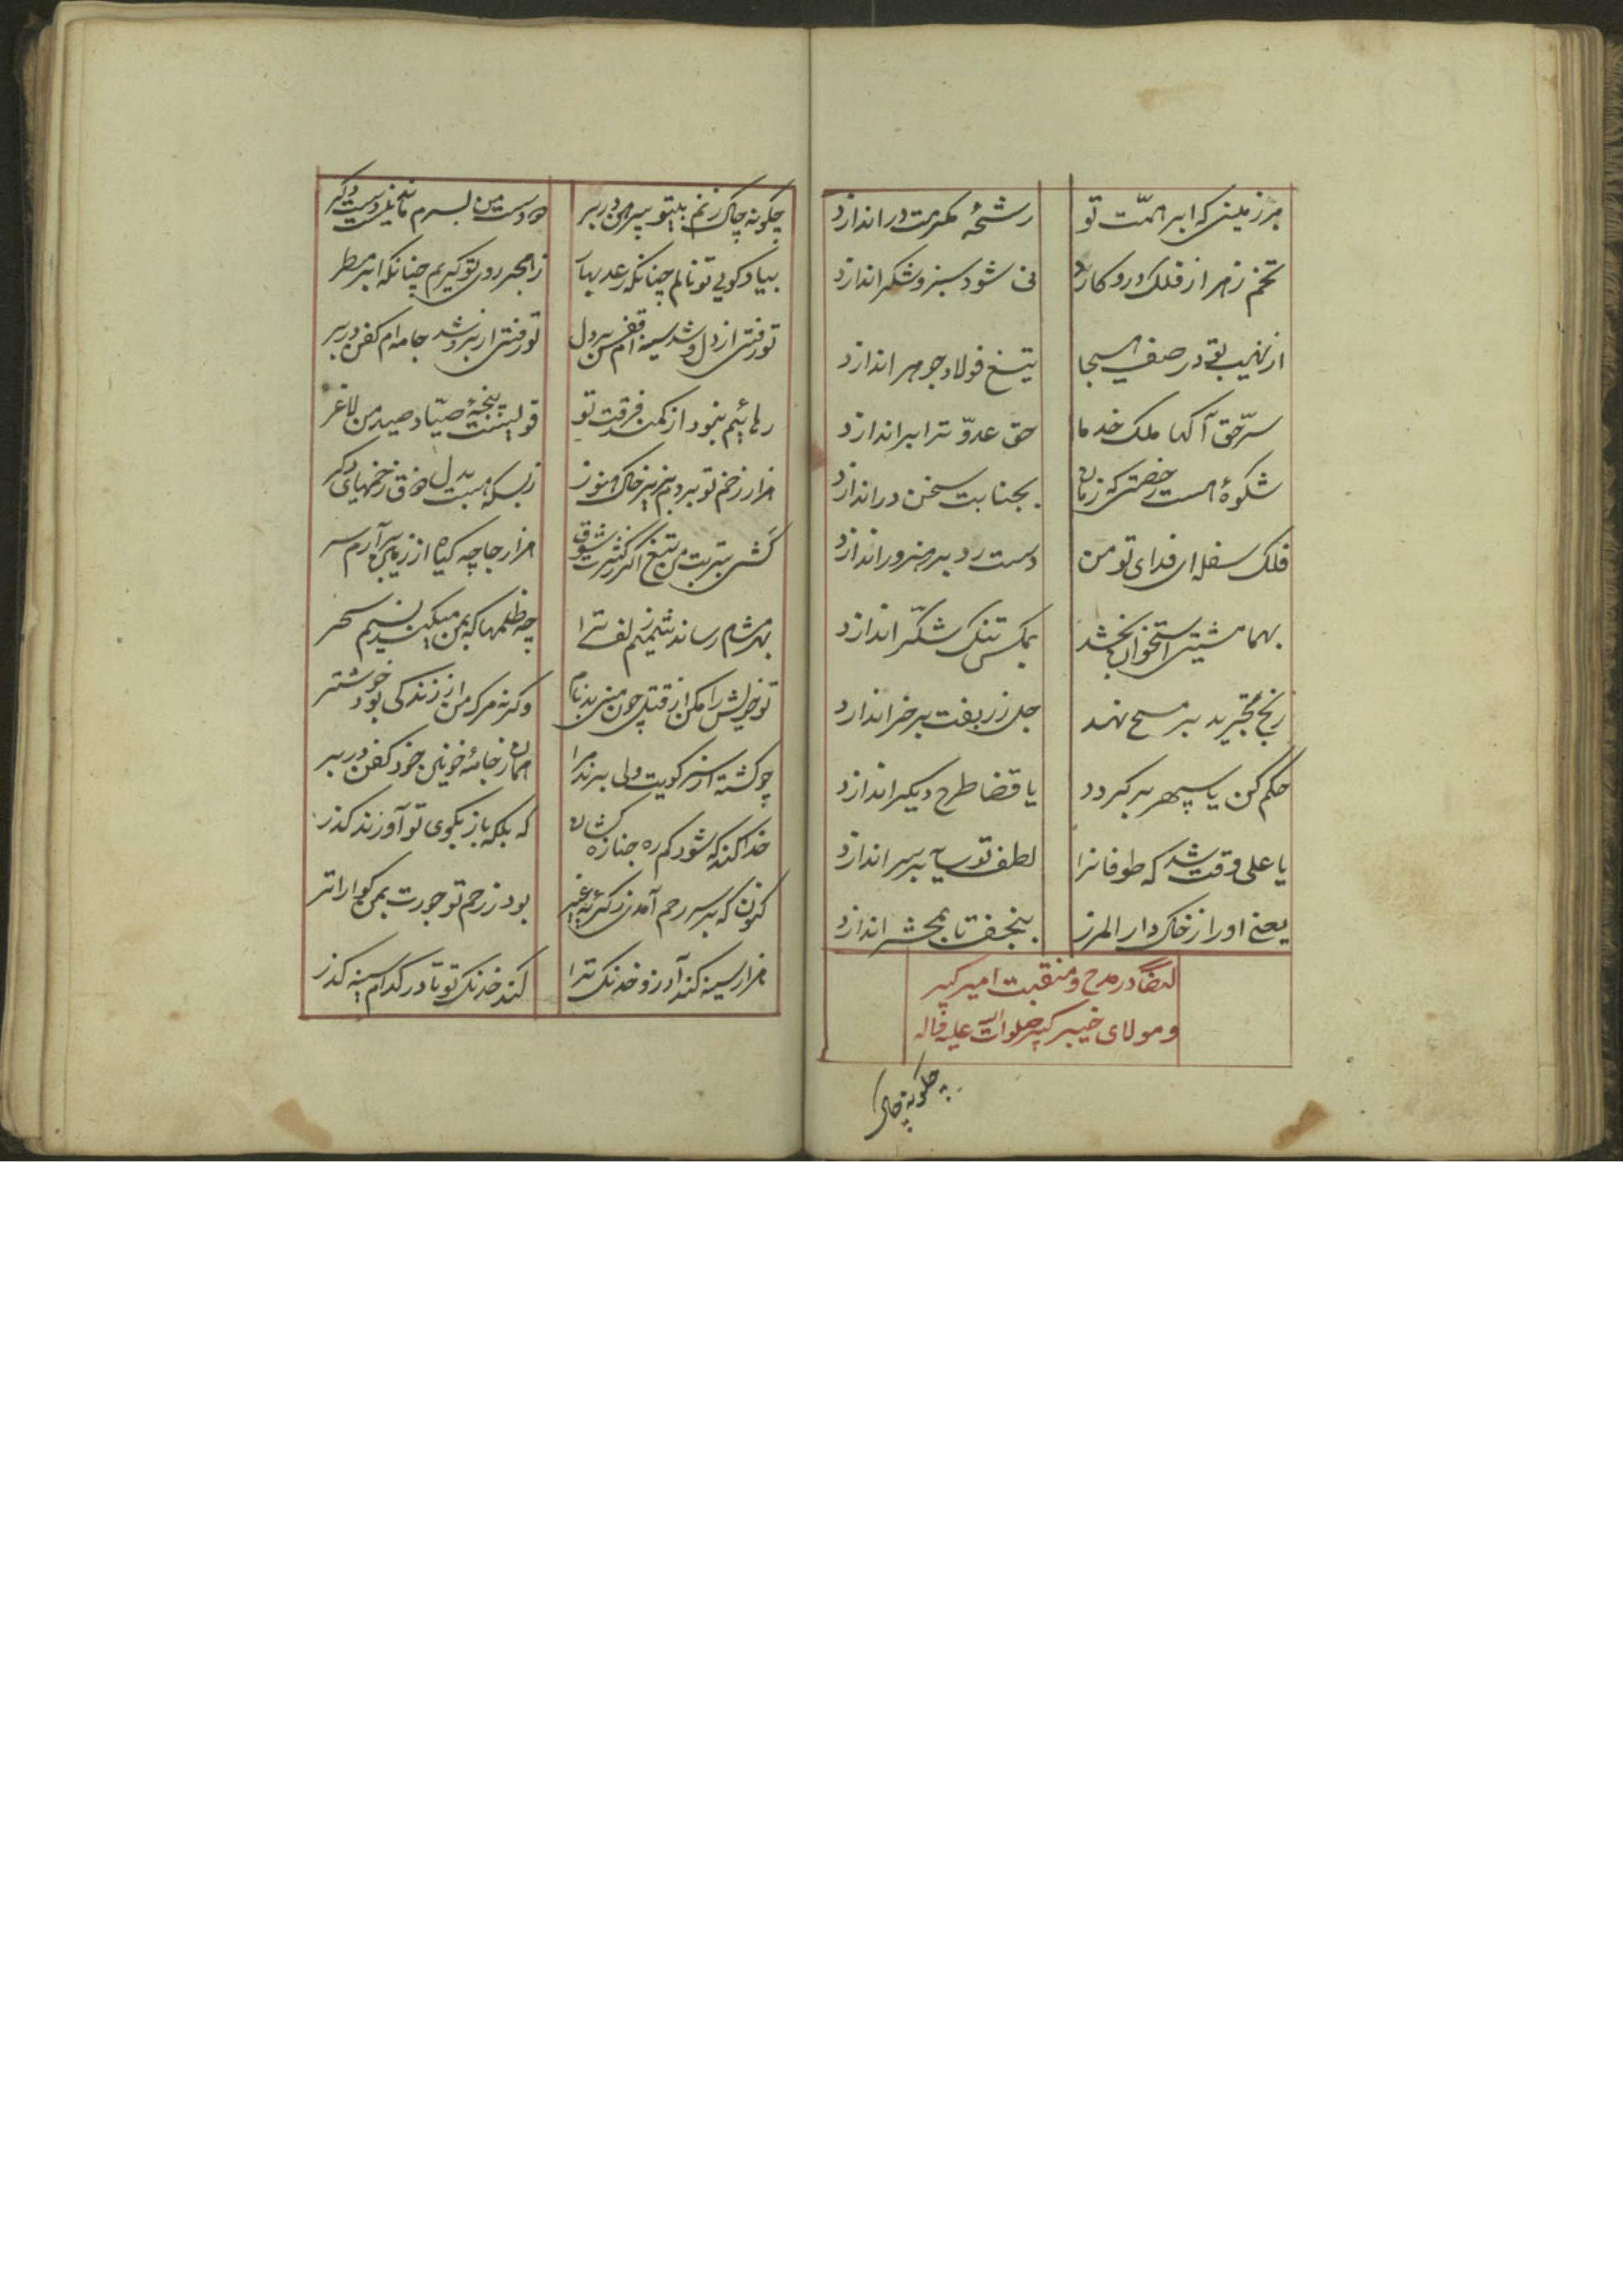 هر زمینی که ابر همّت تو رشحهٔ مکرمت در اندازد
تخم زهر ار فلک درو کارد نی شود سبز و شکر اندازد
از نهیب تو در صف هیجا تیغ فولاد جوهر اندازد
سرّ حق آگها ملک خدما حق عدوّ ترا براندازد
شکوهٔ هست رخصتی که زبان بجنابت سخن در اندازد
فلک سفله ای فدای تو من دست رد بر هنرور اندازد
بهما مشتی استخوان بخشد بمکس تنک شکّر اندازد
رنج تجرید بر مسیح نهد جل زربفت بر خر اندازد
حکم کن یا سپهر برکردد یا قضا طرح دیکر اندازد
یا علی وقت شد که طوفانرا لطف تو سایه بر سر اندازد
یعنی او را ز خاک دار المرز بنجف تا بمحشر اندازد
ایضاً در مدح و منقبت امیر کبیر
و مولای خیبر کیر صلوات الله علیه و آله
چکونه چاک
چکونه چاک زنم بیتو پیرهن در بر دو دست من بسرم مانده نیست دست دکر
بیاد کوی تو نالم چنانکه رعد بهار ز هجر روی تو کریم چنانکه ابر مطر
تو رفتی از دل و شد سینه ام قفس بر دل تو رفتی از بر و شد جامه ام کفن در بر
رهائیم بنمود از کمند فرقت تو قویست پنجهٔ صیّاد و صید من لاغر
هزار زخم تو بردم بزیر خاک و هنوز ز بسکه هست بدل ذوق زخمهای دکر
کشی بتربت من تیغ اکر ز کثرت شوق هزار جا چه کیاه از زمین برآرم سر
بهر مشام رساند شمیم زلف ترا چه ظلمها که بمن میکند نسیم سحر
تو خویش را مکن از قتل چون منی بدنام وکرنه مرک من از زندکی بود خوشتر
چو کشته از سر کویت ولی برند مرا همان ز جامهٔ خونین خود کفن در بر
خدا کند که شود کم ره جنازه کشان که بلکه باز بکوی تو آورند کذر
کنون که بر سر رحم آمدی ز کریهٔ غیر بود ز رحم تو جورت بمن کواراتر
هزار سینه کند آرزو خدنک ترا کند خدنک تو تا در کدام سینه کذر